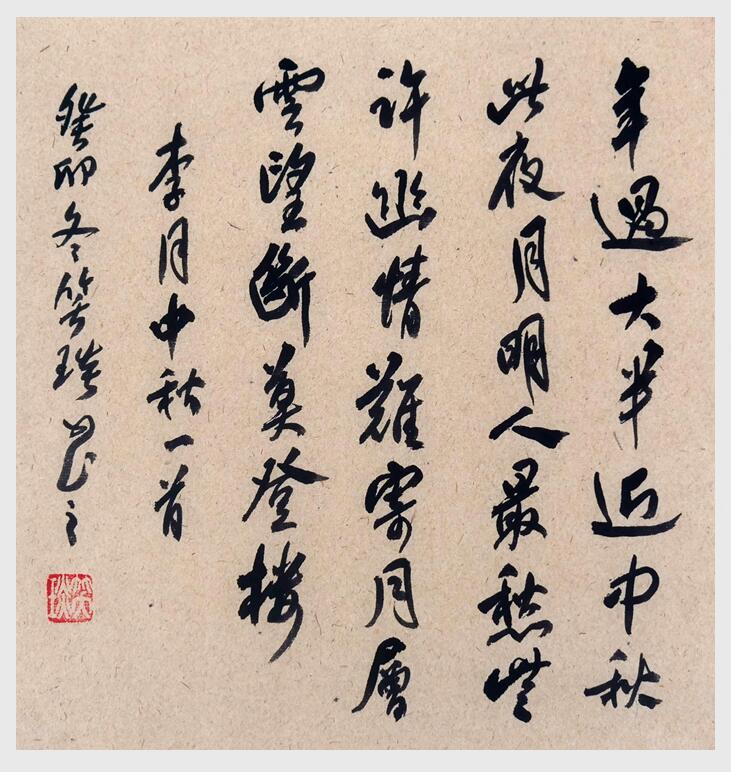 年過大半近中秋
此夜月明人最愁些
許幽情難寄月層
雲望斷莫登樓
李月中秋一首
癸卯冬笑琰書之